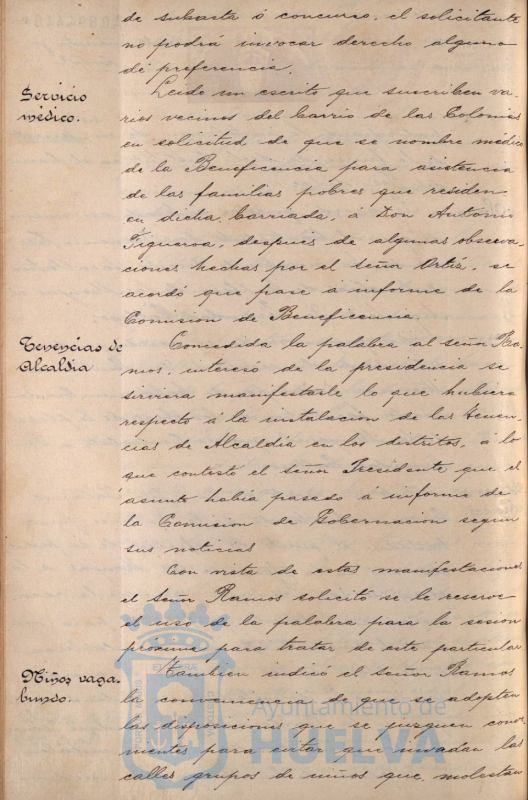 de subasta ó concurso, el solicitante
no podrá invocar derecho alguno
de preferencia.
Servicio
médico.
Leido un escrito que suscriben va-
rios vecinos del barrio de las Colonias
en solicitud de que se nombre médico
de la Beneficencia para asistencia
de las familias pobres que residen
en dicha barriada, á Don Antonio
Figueroa, despues de algunas observa-
ciones hechas por el señor Ortiz, se
acordó que pase a informe de la
Comision de Beneficencia.
Tenencias de
Alcaldia
Concedida la palabra al señor Ra-
mos, interesó de la presidencia se
sirviera manifestarle lo que hubiera
respecto á la instalacion de las tenen-
cias de Alcaldía en los distritos, á lo
que contestó el señor Presidente que el
asunto habia pasado á informe de
la Comision de Gobernacion segun
sus noticias
Con vista de estas manifestaciones
el señor Ramos solicitó se le reserve
el uso de la palabra para la sesion
próxima para tratar de este particular
Niños vaga-
bundo.
Tambien indicó el señor Ramos
la conveniencia de que se adopten
las disposiciones que se juzguen conve-
nientes para evitar que invadan las
calles grupos de niños que molestan
Ayuntamiento de
HUELVA